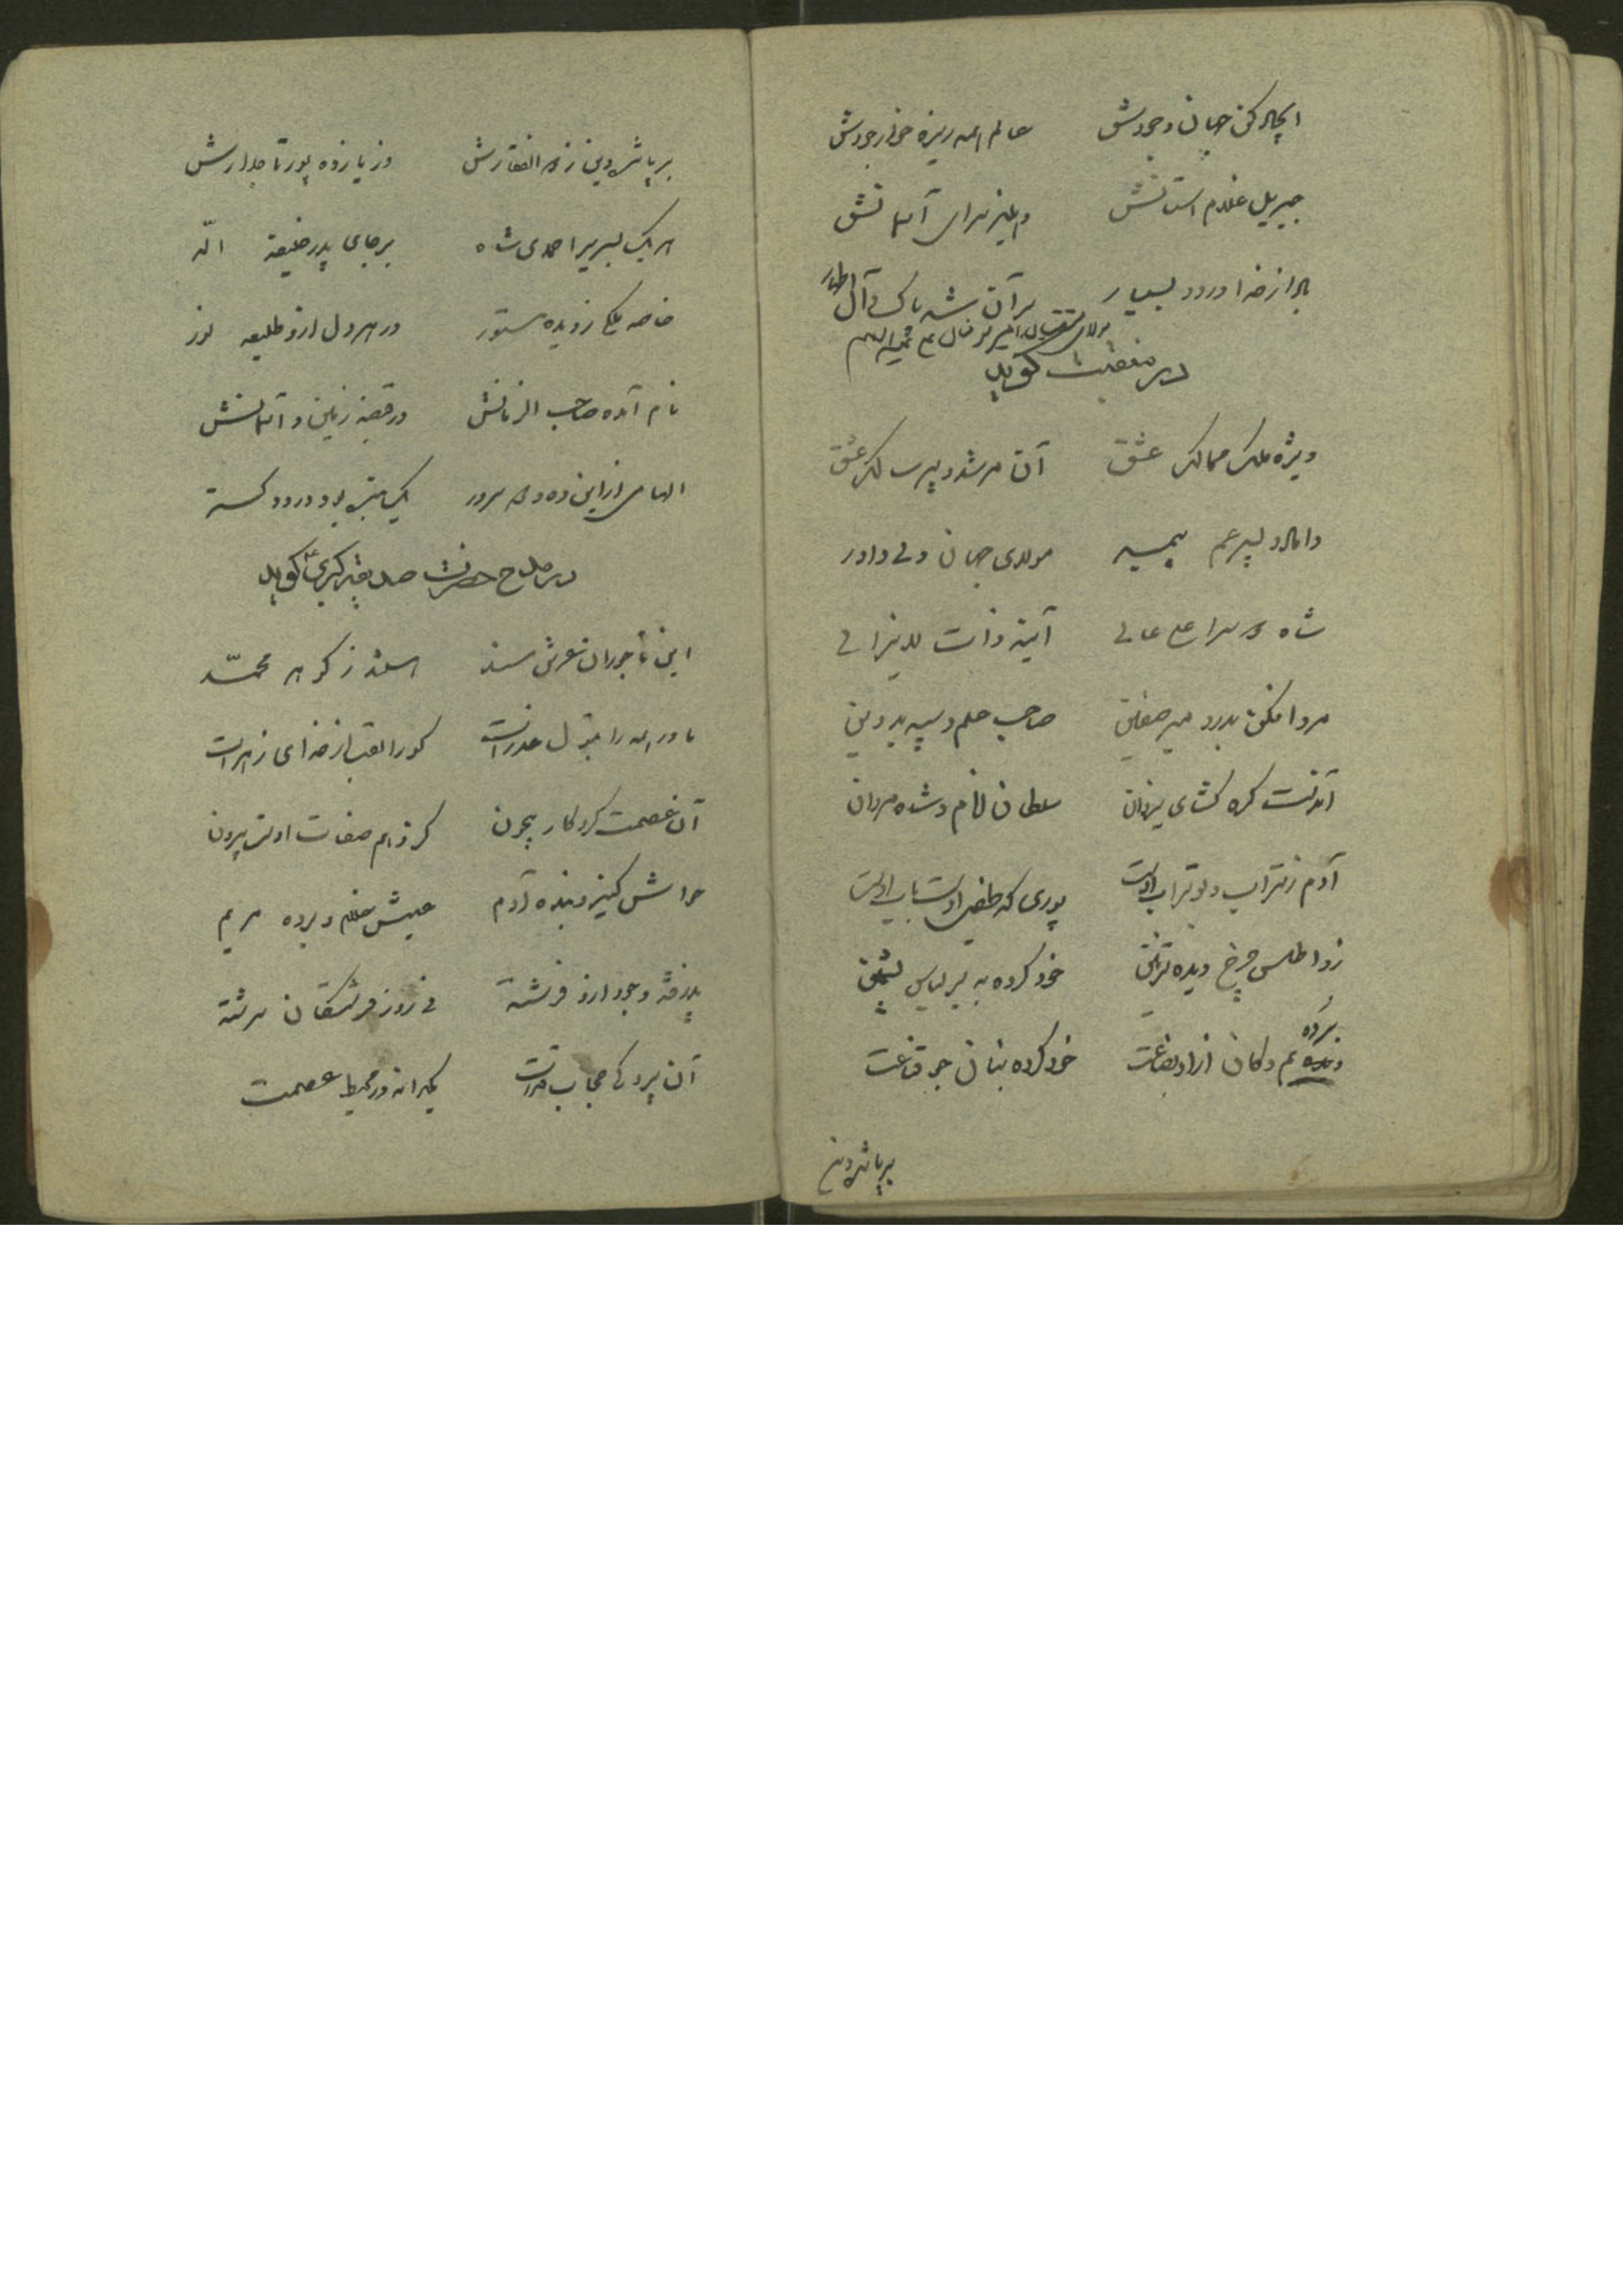 ایجاد کن جهان وجودش عالم همه ریزه خوار جودش
جبریل غلام آستانش دهلیز سرای آسمانش
باد از خدا درود بسیار بر آن شه پاک و آل اطهار
در منقبت مولای متقیان امیر مؤمنان علی علیه السلام گوید
ویژه ملک ممالک عشق آن مرشد و پیر سالک عشق
داماد و پسر عم پیمبر مولای جهان ولی داور
شاه دو سرا علی عالی آینه ذات لایزالی
مرد افکن بدر و میر صفین صاحب علم و سپهبد دین
آن دست گره گشای یزدان سلطان انام و شاه مردان
آدم ز تراب و بوتراب اوست پوری که طفیل اوست باب اوست
زو اطلس چرخ دیده تزیین خود کرده به بر لباس پشمین
برده یم و کان ازو بضاعت خود کرده بنان جو قناعت
بر پا شد دین
بر پا شد دین ز ذوالفقارش وز یازده پور تاجدارش
هر یک بسریر احمدی شاه بر جای پدر خلیفة الله
خاصه ملکی ز دیده مستور در هر دل ازو طلیعه نور
نام آمده صاحب الزمانش در قبضه زمین و آسمانش
الهامی ازین ده و دو سرور یک مرتبه بود و درود گستر
در مدح حضرت صدیقه کبری ع گوید
این تاجوران عرش مسند هستند ز گوهر محمد
مادر همه را بتول عذراست کو را لقب از خدای زهراست
آن عصمت کردگار بیچون کز وهم صفات اوست بیرون
حواش کنیز و بنده آدم عیسیش غلام و برده مریم
پذرفته وجود ازو فرشته نی زو ز فرشتگان سرشته
آن پردگی حجاب قدرت یکدانه در محیط عصمت